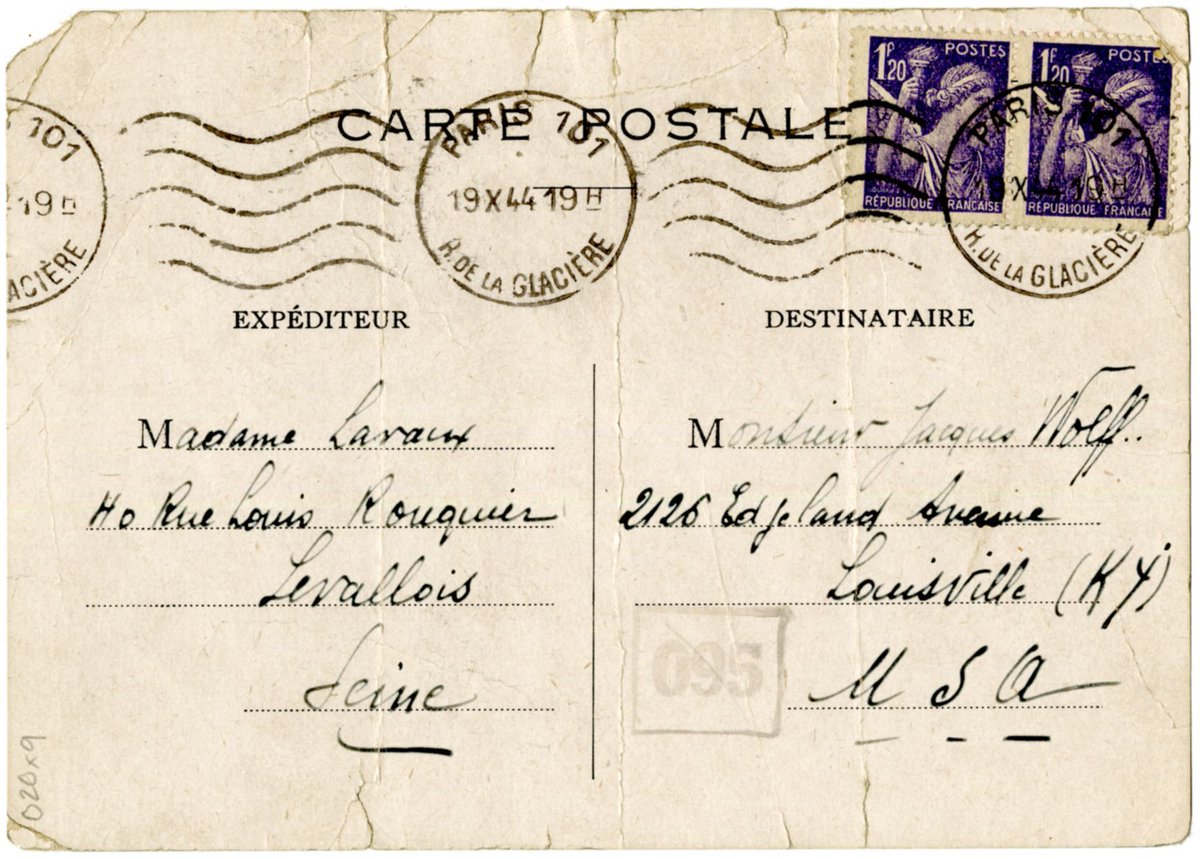 1F20 POSTES 1F20 POSTES
RÉPUBLIQUE FRANÇAISE RÉPUBLIQUE FRANÇAISE
CARTE POSTALE
101
19H
GLACIÈRE
PARIS 101
19 X 44 19H
R. DE LA GLACIÈRE
PARIS 101
19 X 44 19H
R. DE LA GLACIÈRE
EXPÉDITEUR
Madame Lavaux
40 Rue Louis Rouquier
Levallois
Seine
DESTINATAIRE
Monsieur Jacques Wolff..
2126 Edgeland Avenue
Louisville (Ky)
U S A
095
020x9